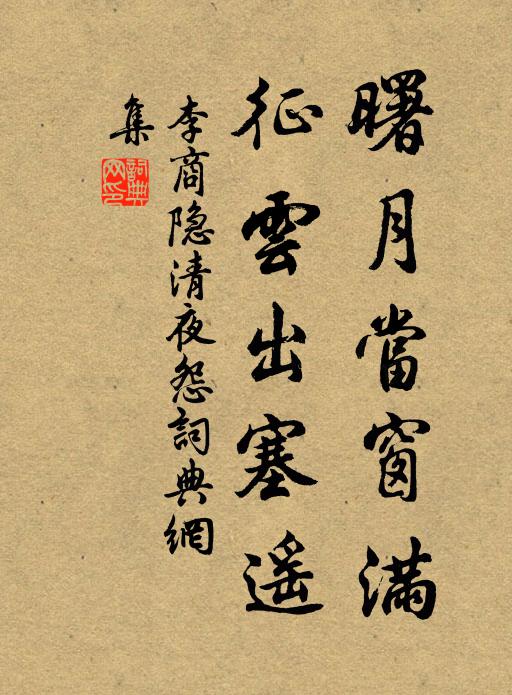 曙月當窗滿
征雲出塞遥
李商隐清夜怨詞典網
集
詞典
网印